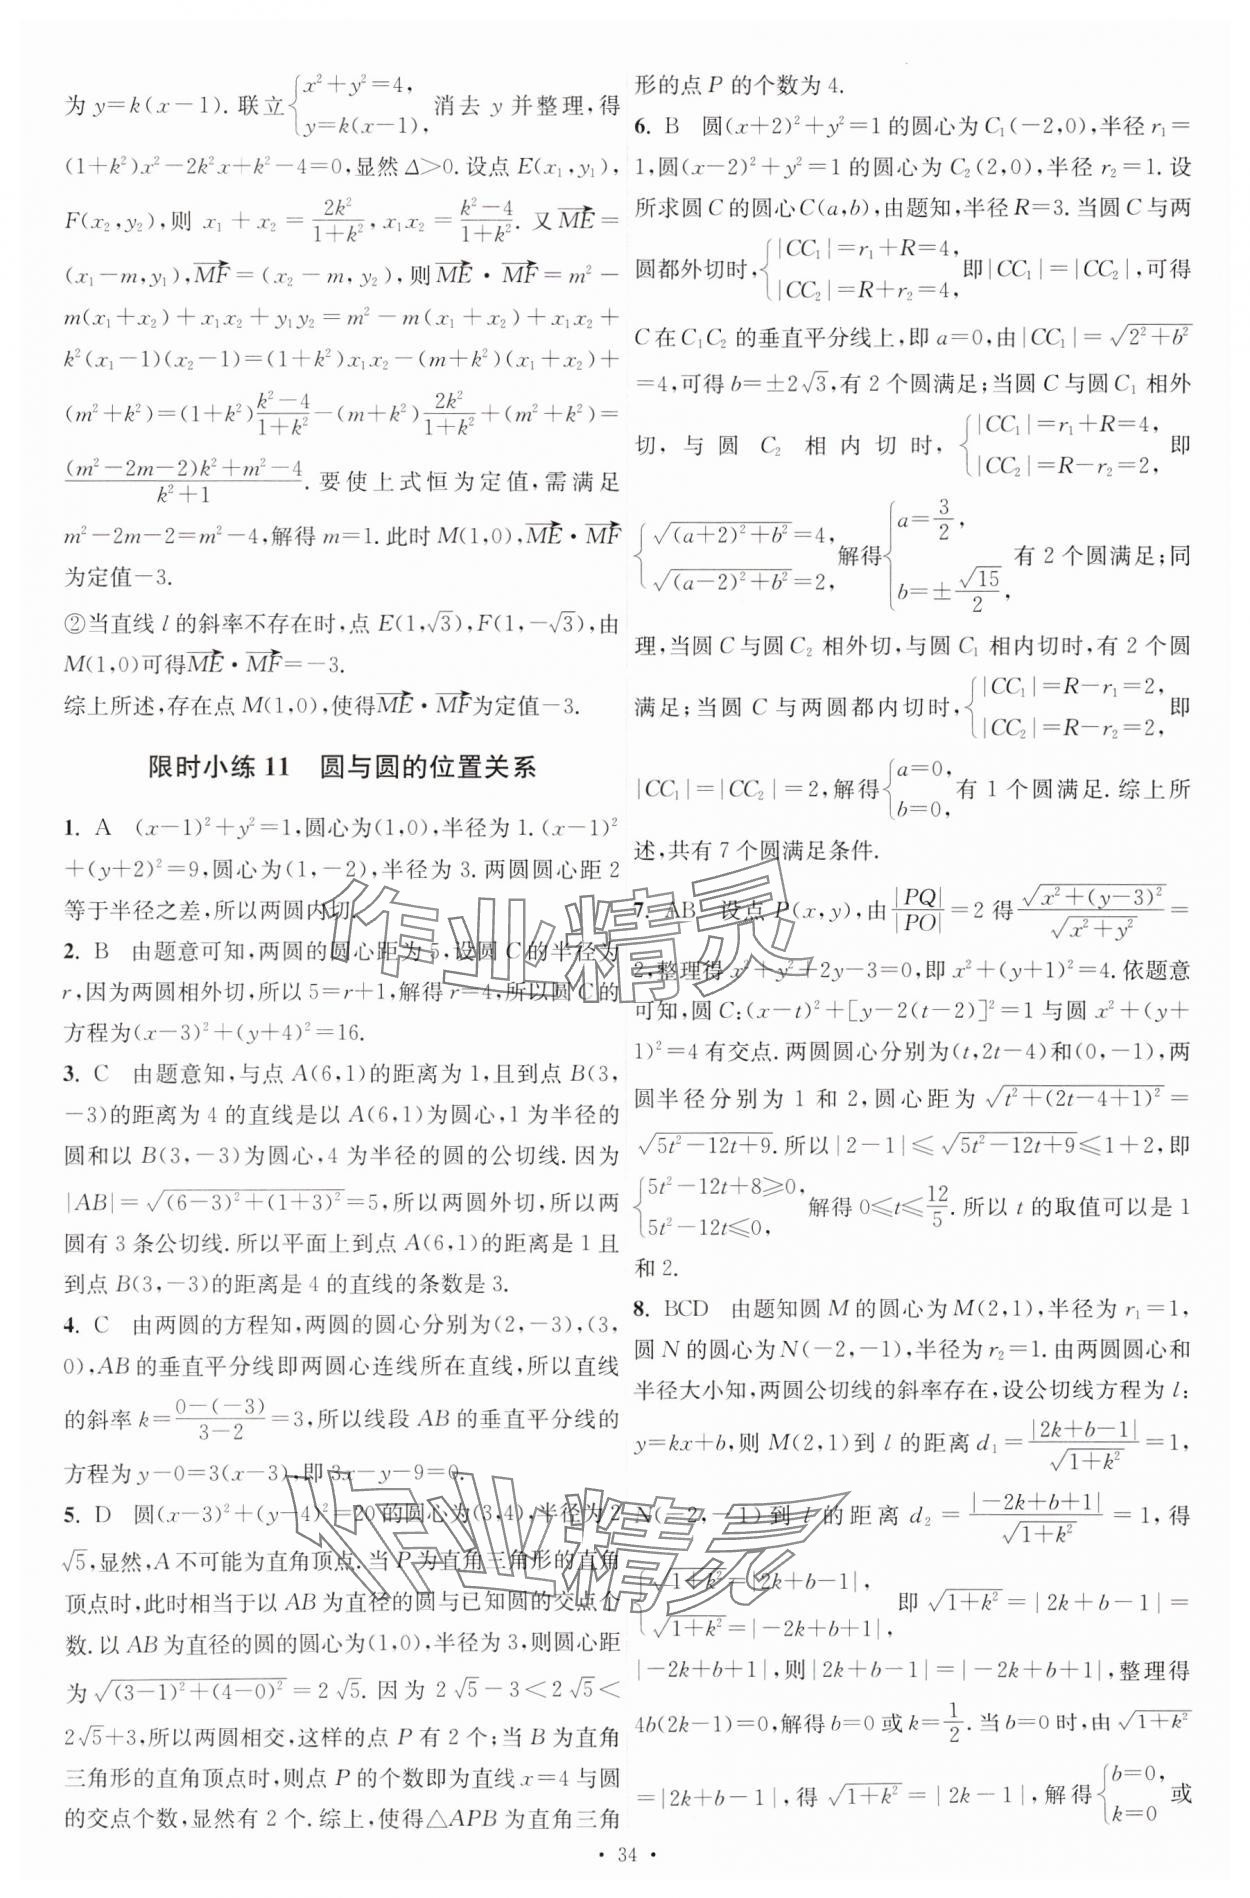 为 y=k(x-1). 联立{x²+y²=4, y=k(x-1), 消去 y 并整理, 得
(1+k²)x²-2k²x+k²-4=0, 显然 Δ>0. 设点 E(x₁,y₁),
F(x₂,y₂), 则 x₁+x₂=2k²/(1+k²), x₁x₂=(k²-4)/(1+k²). 又 ME=
(x₁-m,y₁), MF=(x₂-m,y₂), 则 ME·MF=m²-
m(x₁+x₂)+x₁x₂+y₁y₂=m²-m(x₁+x₂)+x₁x₂+
k²(x₁-1)(x₂-1)=(1+k²)x₁x₂-(m+k²)(x₁+x₂)+
(m²+k²)=(1+k²)(k²-4)/(1+k²)-(m+k²)2k²/(1+k²)+(m²+k²)=
((m²-2m-2)k²+m²-4)/(k²+1). 要使上式恒为定值, 需满足
m²-2m-2=m²-4, 解得 m=1. 此时 M(1,0), ME·MF
为定值-3.
②当直线 l 的斜率不存在时, 点 E(1,√3), F(1,-√3), 由
M(1,0)可得 ME·MF=-3.
综上所述, 存在点 M(1,0), 使得 ME·MF 为定值-3.
限时小练 11 圆与圆的位置关系
1. A (x-1)²+y²=1, 圆心为(1,0), 半径为 1. (x-1)²
+(y+2)²=9, 圆心为(1,-2), 半径为 3. 两圆圆心距 2
等于半径之差, 所以两圆内切.
2. B 由题意可知, 两圆的圆心距为 5, 设圆 C 的半径为
r, 因为两圆相外切, 所以 5=r+1, 解得 r=4, 所以圆 C 的
方程为(x-3)²+(y+4)²=16.
3. C 由题意知, 与点 A(6,1)的距离为 1, 且到点 B(3,
-3)的距离为 4 的直线是以 A(6,1)为圆心, 1 为半径的
圆和以 B(3,-3)为圆心, 4 为半径的圆的公切线. 因为
|AB|=√((6-3)²+(1+3)²)=5, 所以两圆外切, 所以两
圆有 3 条公切线. 所以平面上到点 A(6,1)的距离是 1 且
到点 B(3,-3)的距离是 4 的直线的条数是 3.
4. C 由两圆的方程知, 两圆的圆心分别为(2,-3), (3,
0), AB 的垂直平分线即两圆心连线所在直线, 所以直线
的斜率 k=(0-(-3))/(3-2)=3, 所以线段 AB 的垂直平分线的
方程为 y-0=3(x-3), 即 3x-y-9=0.
5. D 圆(x-3)²+(y-4)²=20 的圆心为(3,4), 半径为 2
√5, 显然, A 不可能为直角顶点. 当 P 为直角三角形的直角
顶点时, 此时相当于以 AB 为直径的圆与已知圆的交点个
数. 以 AB 为直径的圆的圆心为(1,0), 半径为 3, 则圆心距
为√((3-1)²+(4-0)²)=2√5. 因为 2√5-3<2√5<
2√5+3, 所以两圆相交, 这样的点 P 有 2 个; 当 B 为直角
三角形的直角顶点时, 则点 P 的个数即为直线 x=4 与圆
的交点个数, 显然有 2 个. 综上, 使得△APB 为直角三角
形的点 P 的个数为 4.
6. B 圆(x+2)²+y²=1 的圆心为 C₁(-2,0), 半径 r₁=
1, 圆(x-2)²+y²=1 的圆心为 C₂(2,0), 半径 r₂=1. 设
所求圆 C 的圆心 C(a,b), 由题知, 半径 R=3. 当圆 C 与两
圆都外切时, {|CC₁|=r₁+R=4, |CC₂|=R+r₂=4, 即|CC₁|=|CC₂|, 可得
C 在 C₁C₂ 的垂直平分线上, 即 a=0, 由|CC₁|=√(2²+b²)
=4, 可得 b=±2√3, 有 2 个圆满足; 当圆 C 与圆 C₁ 相外
切, 与圆 C₂ 相内切时, {|CC₁|=r₁+R=4, |CC₂|=R-r₂=2, 即
{√((a+2)²+b²)=4, √((a-2)²+b²)=2, 解得{a=3/2, b=±√15/2, 有 2 个圆满足; 同
理, 当圆 C 与圆 C₂ 相外切, 与圆 C₁ 相内切时, 有 2 个圆
满足; 当圆 C 与两圆都内切时, {|CC₁|=R-r₁=2, |CC₂|=R-r₂=2, 即
|CC₁|=|CC₂|=2, 解得{a=0, b=0, 有 1 个圆满足. 综上所
述, 共有 7 个圆满足条件.
7. AB 设点 P(x,y), 由|PQ|/|PO|=2 得√(x²+(y-3)²)/√(x²+y²)=
2, 整理得 x²+y²+2y-3=0, 即 x²+(y+1)²=4. 依题意
可知, 圆 C: (x-t)²+[y-2(t-2)]²=1 与圆 x²+(y+
1)²=4 有交点. 两圆圆心分别为(t,2t-4)和(0,-1), 两
圆半径分别为 1 和 2, 圆心距为√(t²+(2t-4+1)²)=
√(5t²-12t+9). 所以|2-1|≤√(5t²-12t+9)≤1+2, 即
{5t²-12t+8≥0, 5t²-12t≤0, 解得 0≤t≤12/5. 所以 t 的取值可以是 1
和 2.
8. BCD 由题知圆 M 的圆心为 M(2,1), 半径为 r₁=1,
圆 N 的圆心为 N(-2,-1), 半径为 r₂=1. 由两圆圆心和
半径大小知, 两圆公切线的斜率存在, 设公切线方程为 l:
y=kx+b, 则 M(2,1)到 l 的距离 d₁=|2k+b-1|/√(1+k²)=1,
N(-2,-1)到 l 的距离 d₂=|-2k+b+1|/√(1+k²)=1, 得
{√(1+k²)=|2k+b-1|, √(1+k²)=|-2k+b+1|, 即√(1+k²)=|2k+b-1|=
|-2k+b+1|, 则|2k+b-1|=|-2k+b+1|, 整理得
4b(2k-1)=0, 解得 b=0 或 k=1/2. 当 b=0 时, 由√(1+k²)
=|2k+b-1|, 得√(1+k²)=|2k-1|, 解得{b=0, k=0 或
· 34 ·
作业精灵
作业精灵